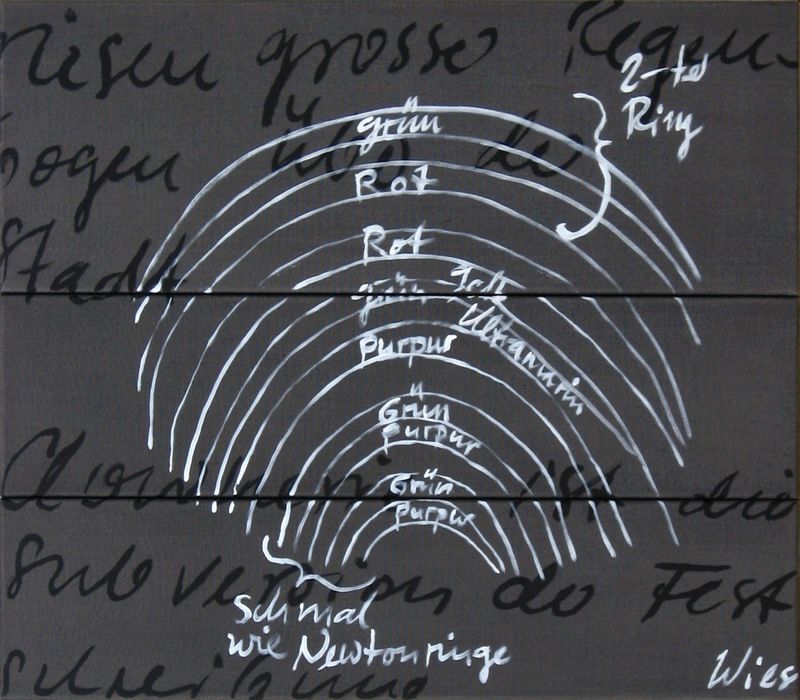 riesen grosse Regen-
bogen über der
Stadt
ist die
Subversion der Fest
schreibung
2-ter
Ring
grün
Rot
Rot
grün
Ultramarin
purpur
Grün
purpur
Grün
purpur
schmal
wie Newtonringe
Wies